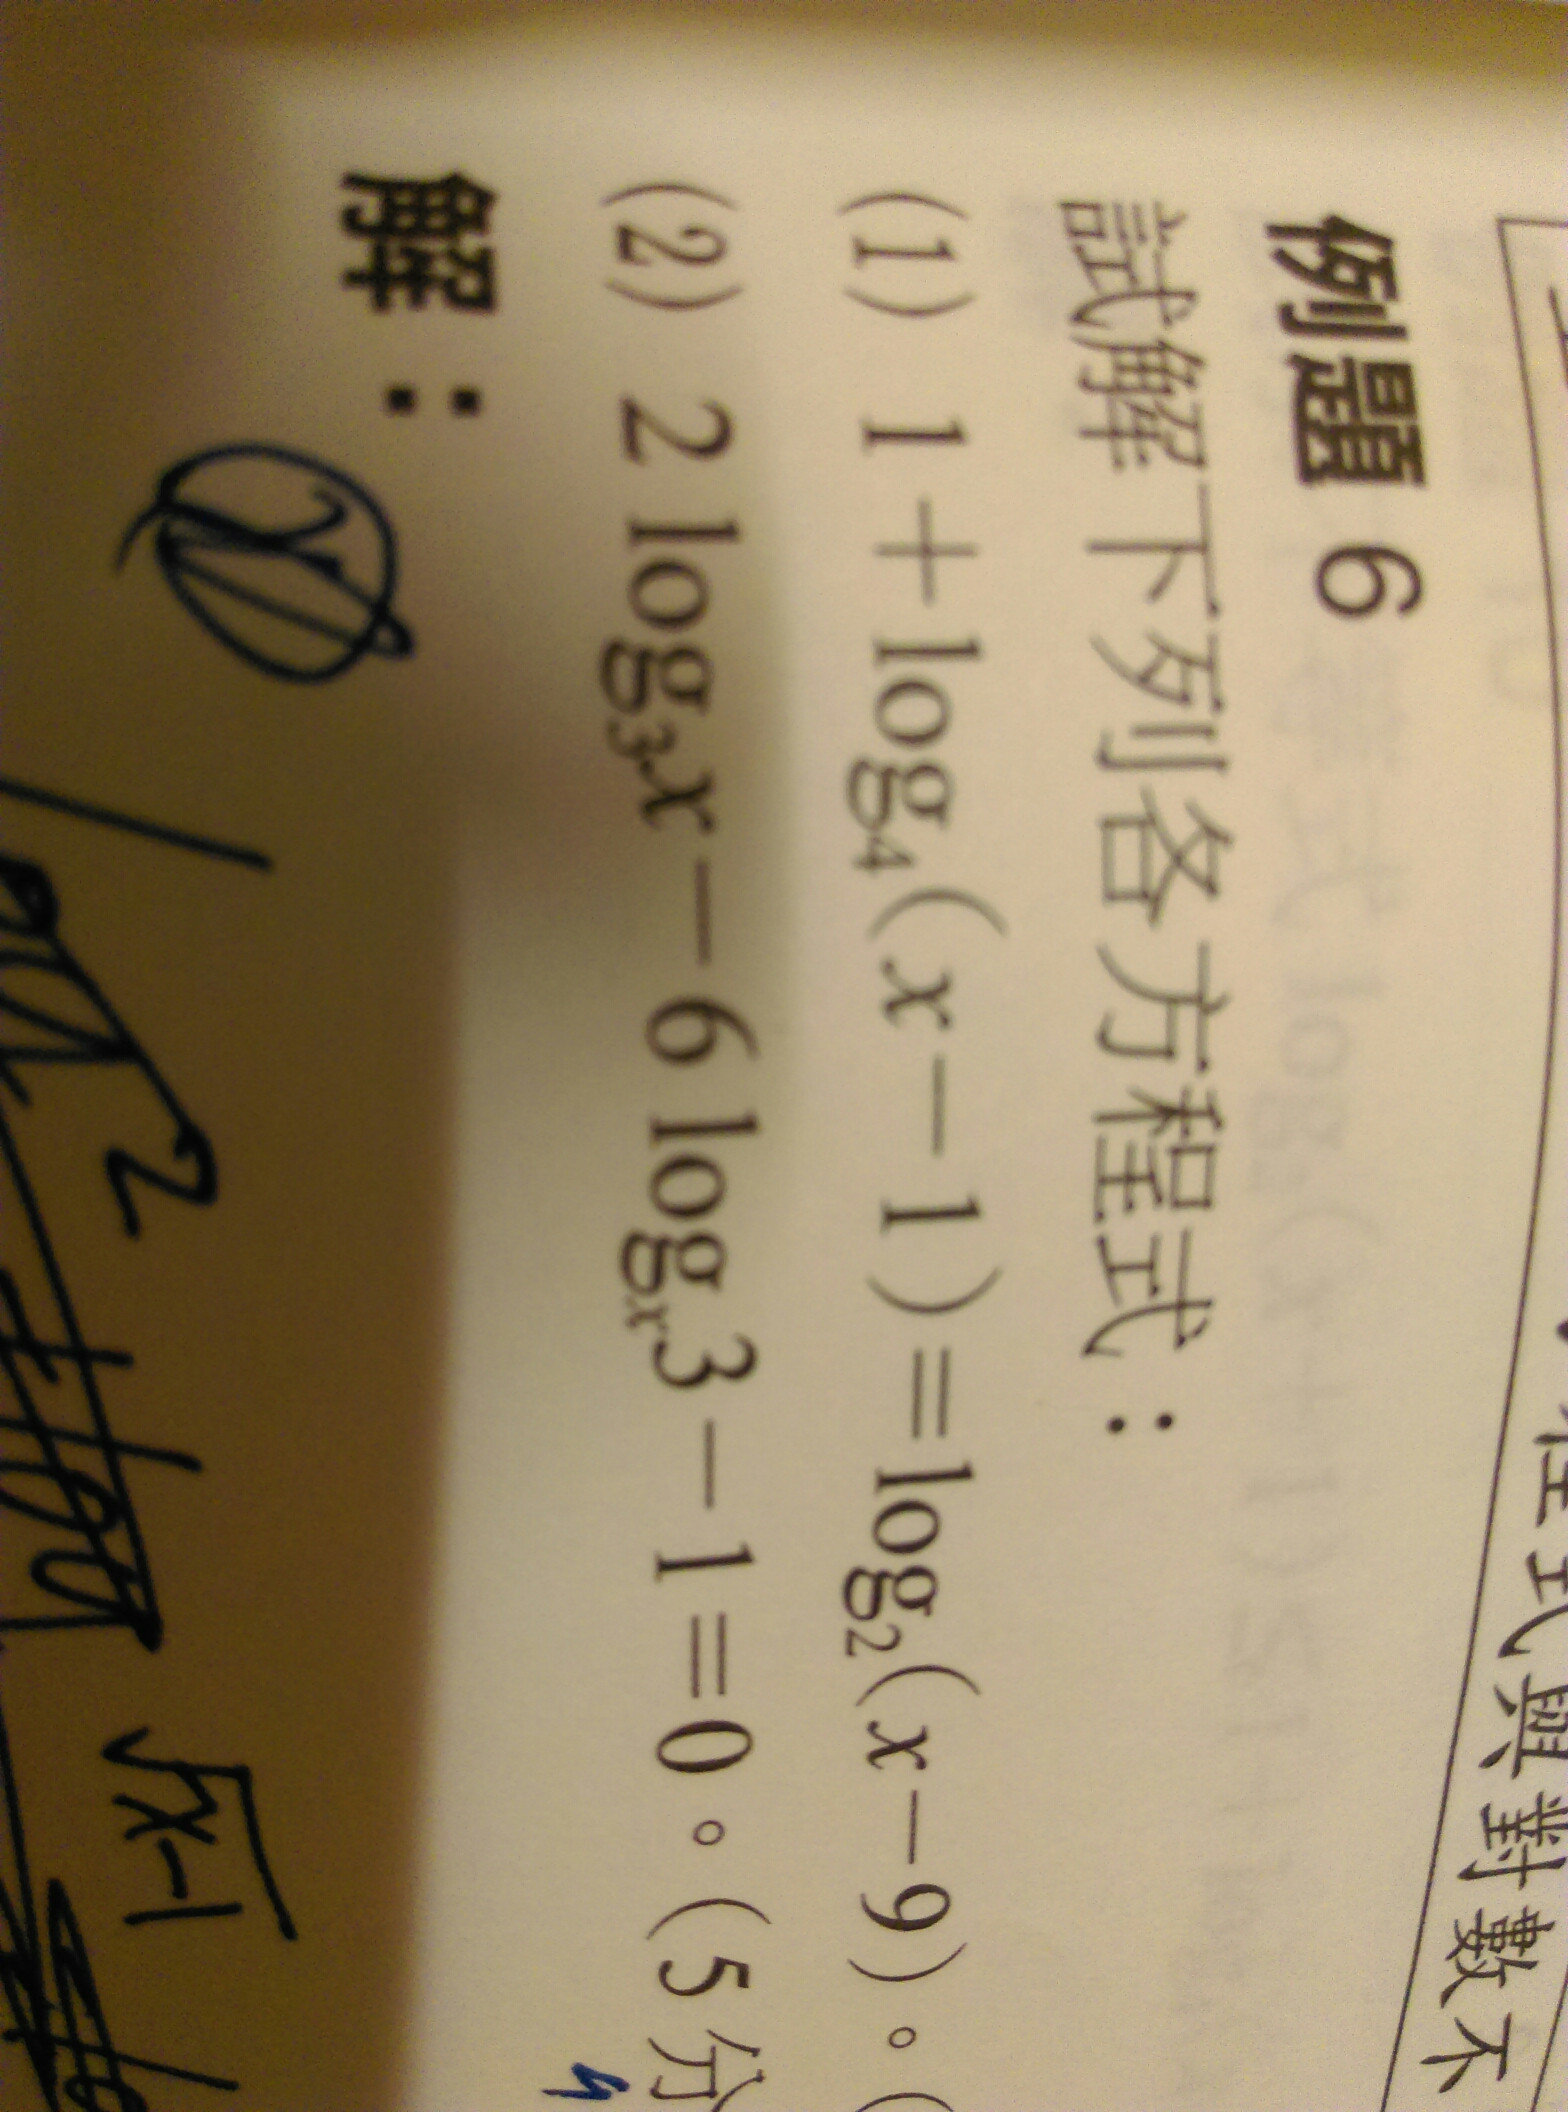 程式與對數不
例題 6
試解下列各方程式：
(1) 1+log₄(x−1)=log₂(x−9)。(
(2) 2 log₃x−6 logₓ3−1=0。(5分
解：
2
√x-1